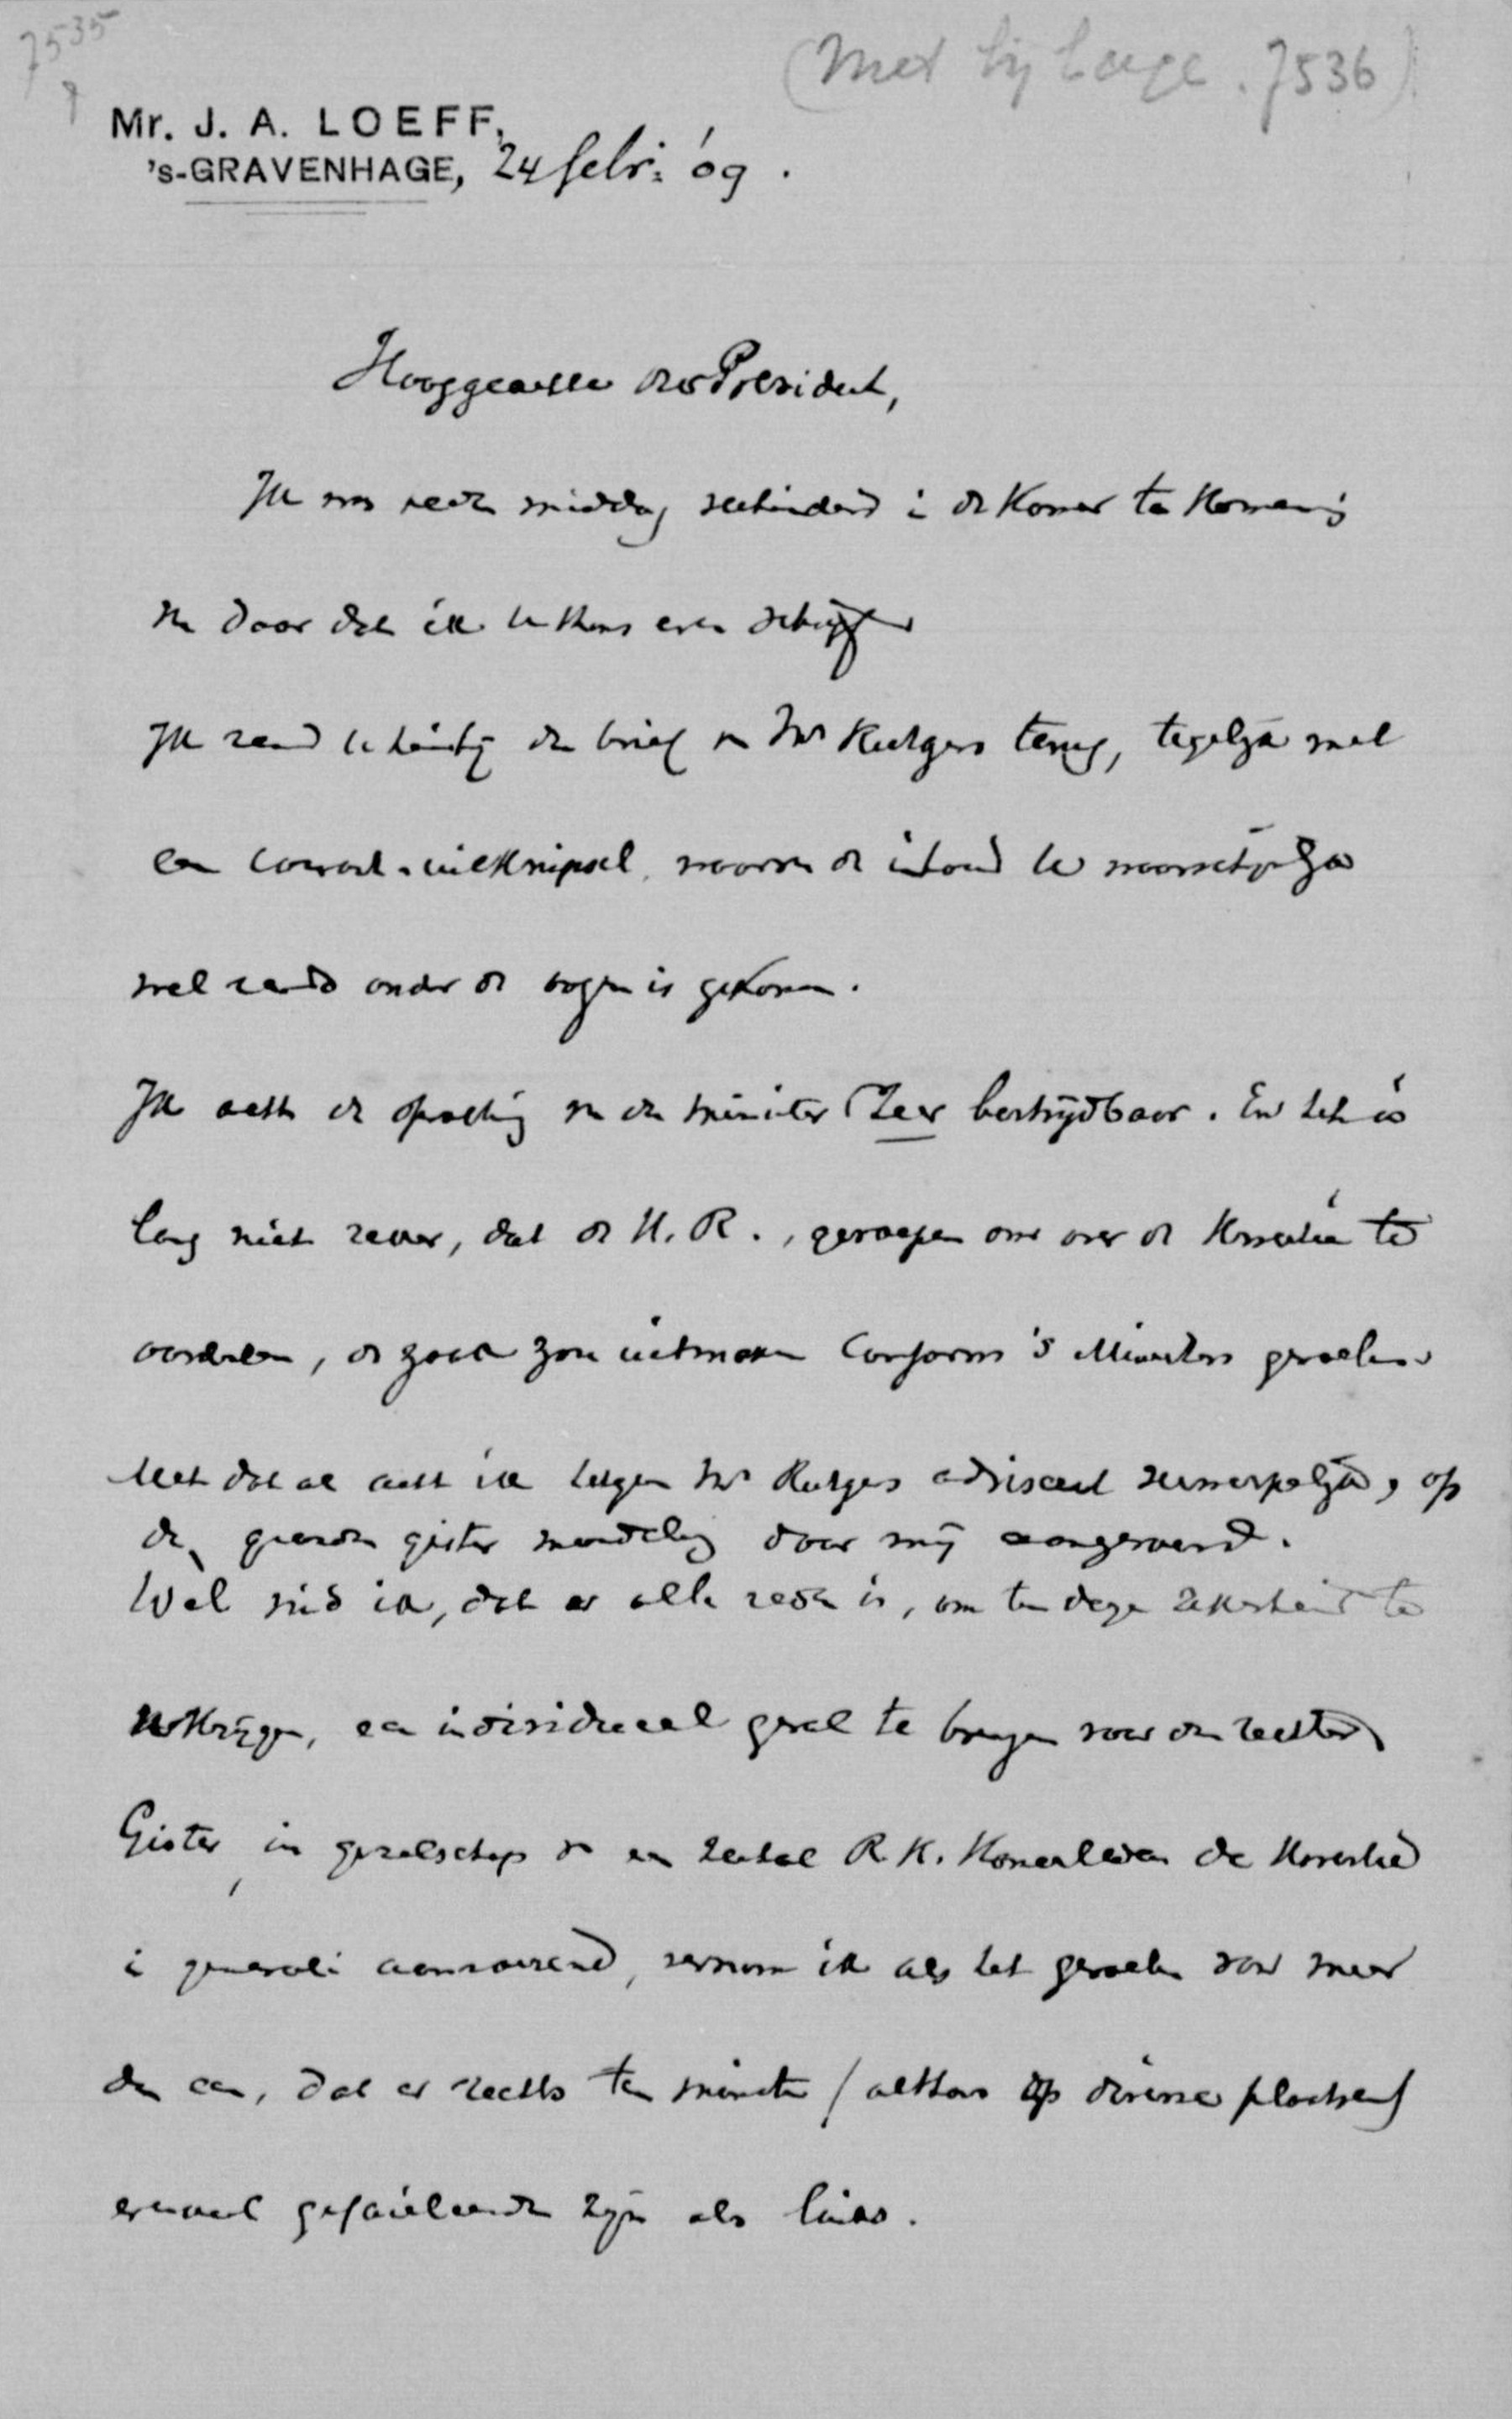 7535
(Met bijlage. 7536)
Mr. J. A. LOEFF,
's-GRAVENHAGE, 24 febr: '09.
Hooggeachte Oud President,
Ik was heden middag verhinderd in de Kamer te komen;
van daar dat ik U thans even schrijf
Ik zend U hierbij den brief van Mr Rutgers terug, tegelijk met
een courant-uitknipsel, waarvan de inhoud U waarschijnlijk
wel reeds onder de oogen is gekomen.
Ik acht de opvatting van den Minister zeer bestrijdbaar. En het is
lang niet zeker, dat de H.R., geroepen om over de kwestie te
oordelen, de zaak zou uitmaken conform 's Ministers gevoelen.
Met dat al acht ik het gen Mr Rutgers adviseert verwerpelijk, op
de gronden gister mondeling door mij aangevoerd.
Wel vind ik, dat er alle reden is, om ten dage zekerheid te
verkrijgen, een individueel geval te brengen voor den rechter
Gister, in gezelschap van een zestal R.K. Kamerleden de kwestie
in generali aanroerend, vernam ik als het gevoelen van meer
dan een, dat er rechts ten minste (althans op diverse plaatsen)
evenveel gefailleerden zijn als links.